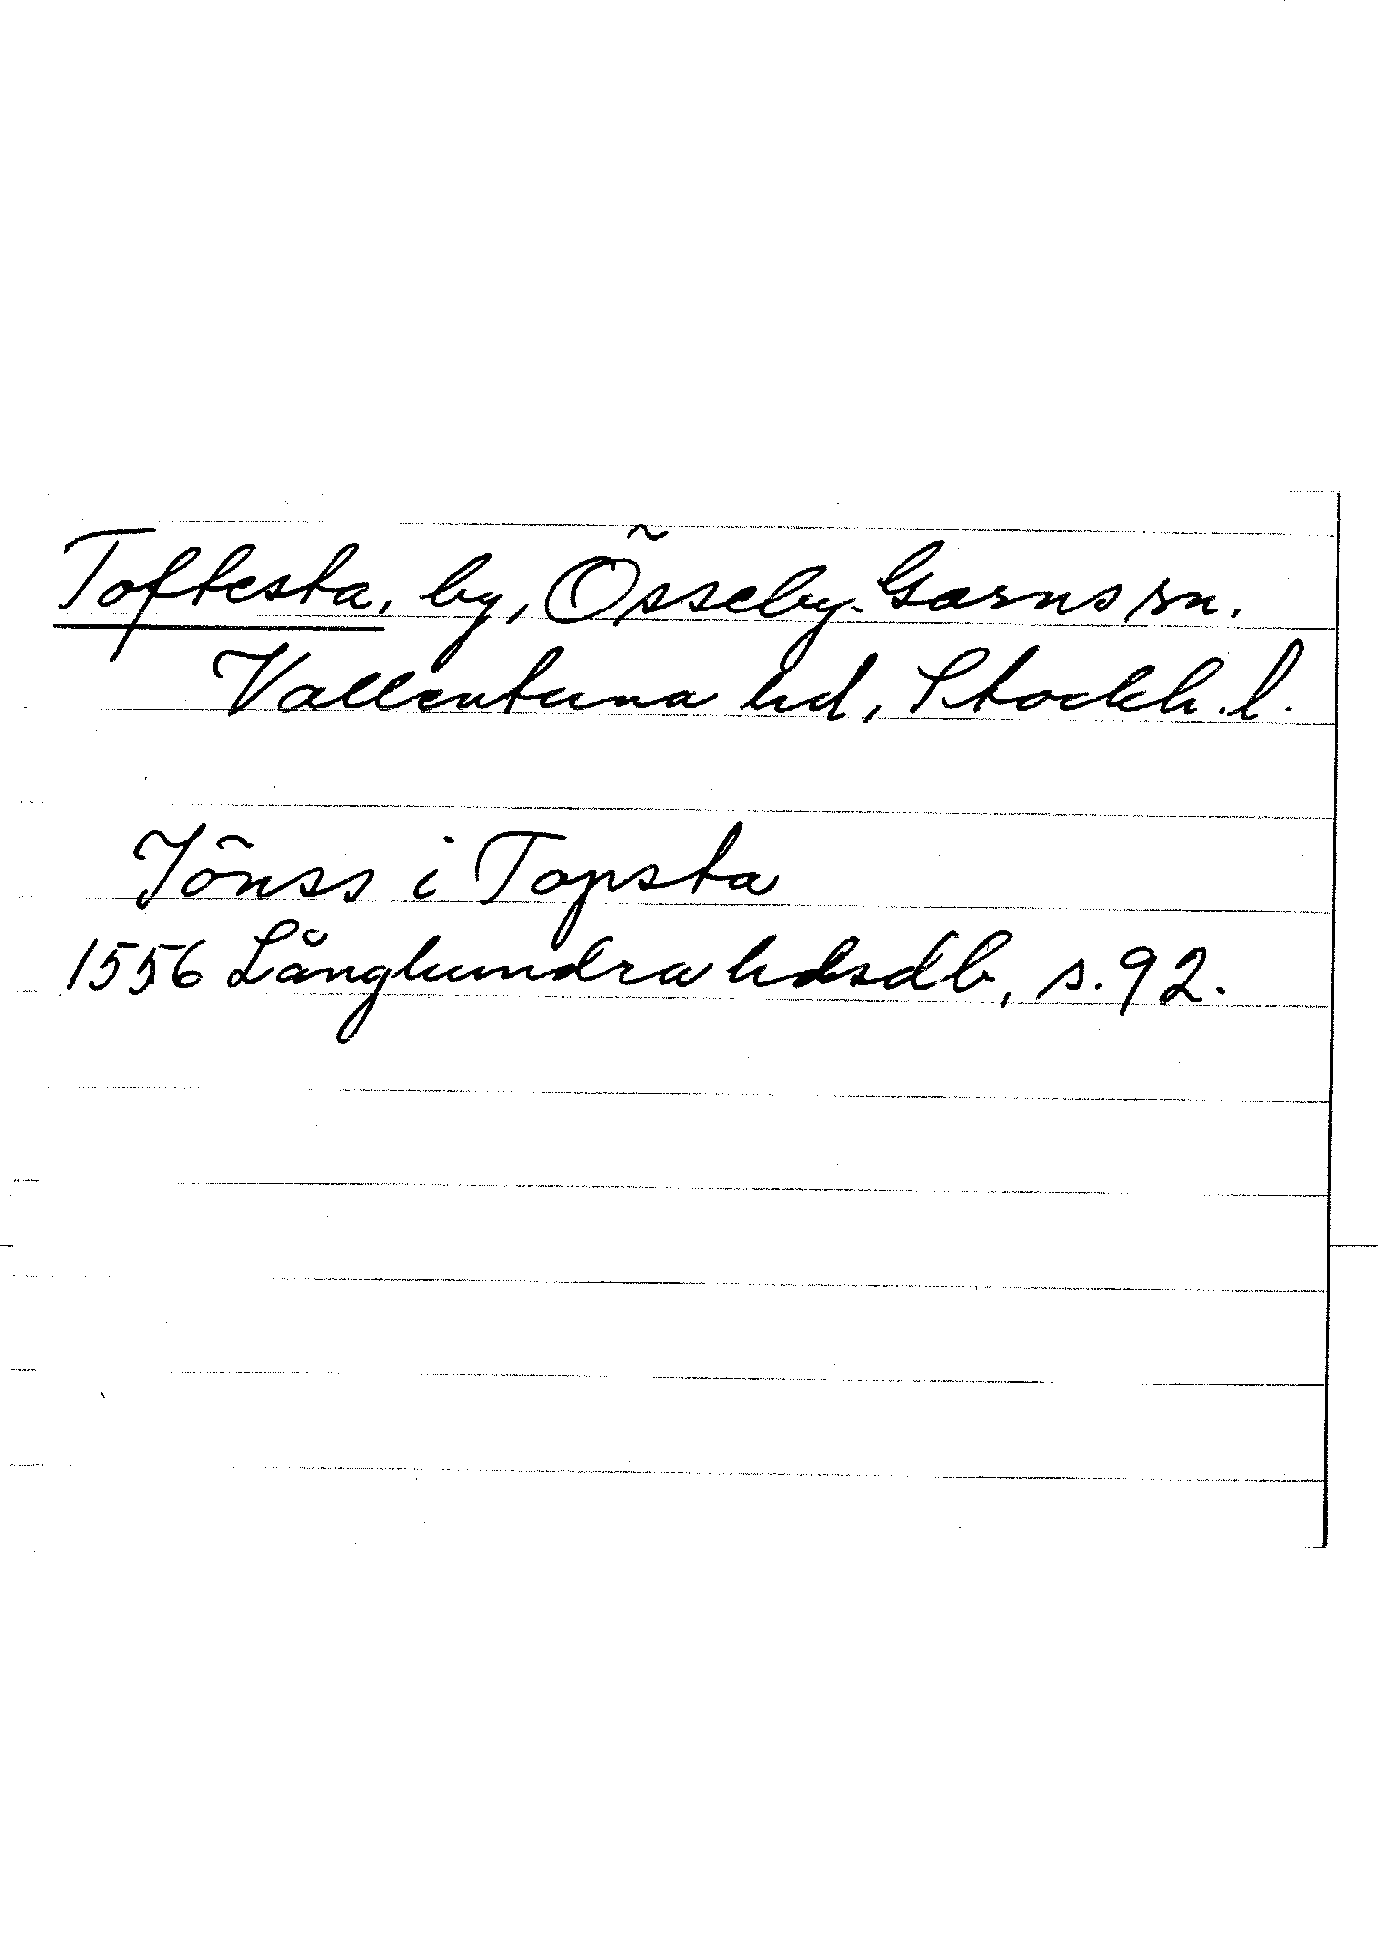 Toftesta, by, Össeby-Garns sn.
Vallentuna hd, Stockh. l.
Jönss i Topsta
1556 Långhundra hdsdb, s. 92.